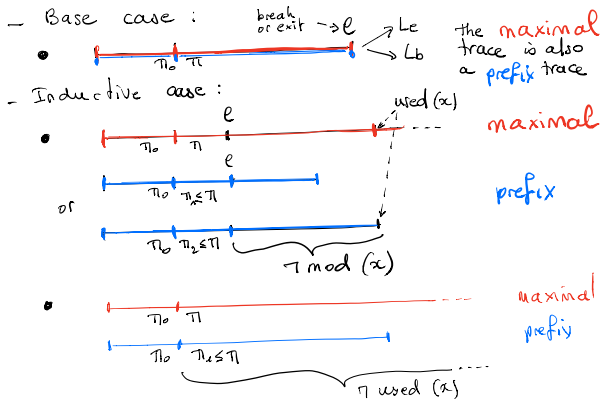 - Base case :
break
or exit → ℓ
Le
Lb
π₀ π
The maximal
trace is also
a prefix trace
- Inductive case :
used (x)
ℓ
π₀ π
maximal
ℓ
π₀ π₁≤π
prefix
or
π₀ π₂≤π
¬ mod (x)
π₀ π
maximal
π₀ π₁≤π
prefix
¬ used (x)